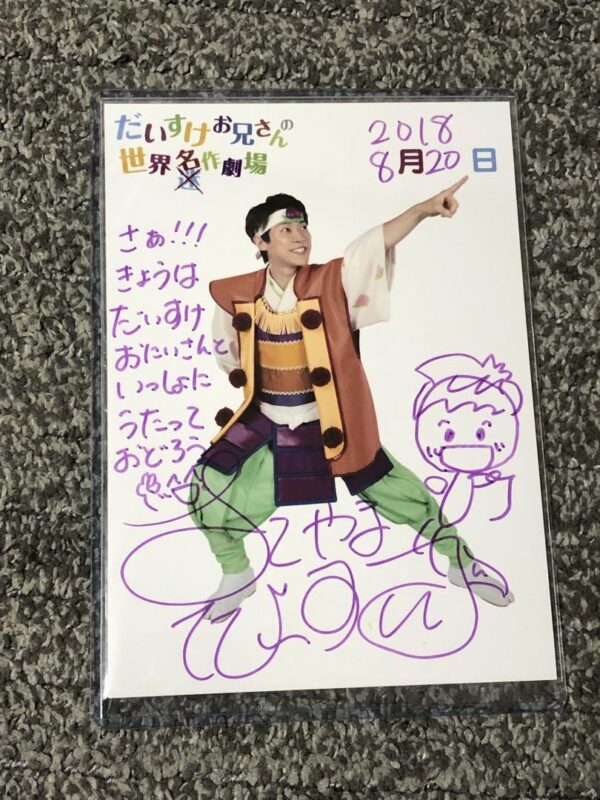 だいすけお兄さんの
世界名作劇場
2018
8月20日
さぁ!!!
きょうは
だいすけ
おにいさんと
いっしょに
うたって
おどろう